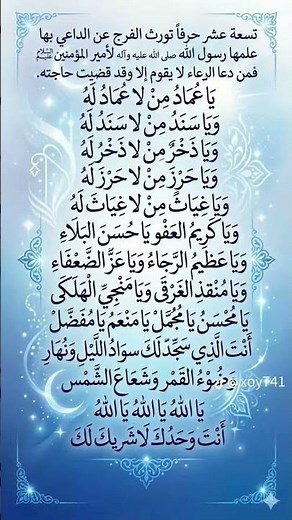 تسعة عشر حرفاً تورث الفرج عن الداعي بها
علمها رسول الله صلى الله عليه وآله لأمير المؤمنين عليه السلام
فمن دعا الرعاء لا يقوم إلا وقد قضيت حاجته.
يَا عُمَادُ مِنْ لَا عُمَادُ لَهُ
وَيَا سَنَدُ مِنْ لَا سَنَدُ لَهُ
وَيَا ذَخْرٌ مِنْ لَا ذَخْرُ لَهُ
وَيَا حَرْزَ مِنْ لَا حَرْزَ لَهُ
وَيَا غِيَاثٌ مِنْ لَا غِيَاثَ لَهُ
وَيَا كَرِيمُ العَفْوِ يَا حُسَنَ البَلَاءِ
وَيَا عَظِيمُ الرَّجَاءُ وَيَا عَزَّ الضَّعْفَاءِ
وَيَا مُنْقِذِ الغَرْقَى وَيَا مَنْجِيِّ الْهَلْكَى
يَا مُحْسَنُ يَا مُجَمِّلْ يَا مَنْعَمُ يَا مُفَضِّلْ
أَنْتَ الَّذِي سَجِّدَ لَكَ سَوَادُ اللَّيْلِ وَنُهَارِ
وَضُوْءُ القَمْرِ وَشُعَاعَ الشَّمْسُ
@xoy741
يَا اللهُ يَا اللهُ يَا اللهُ
أَنْتَ وَحْدُكَ لَا شَرِيكَ لَكَ